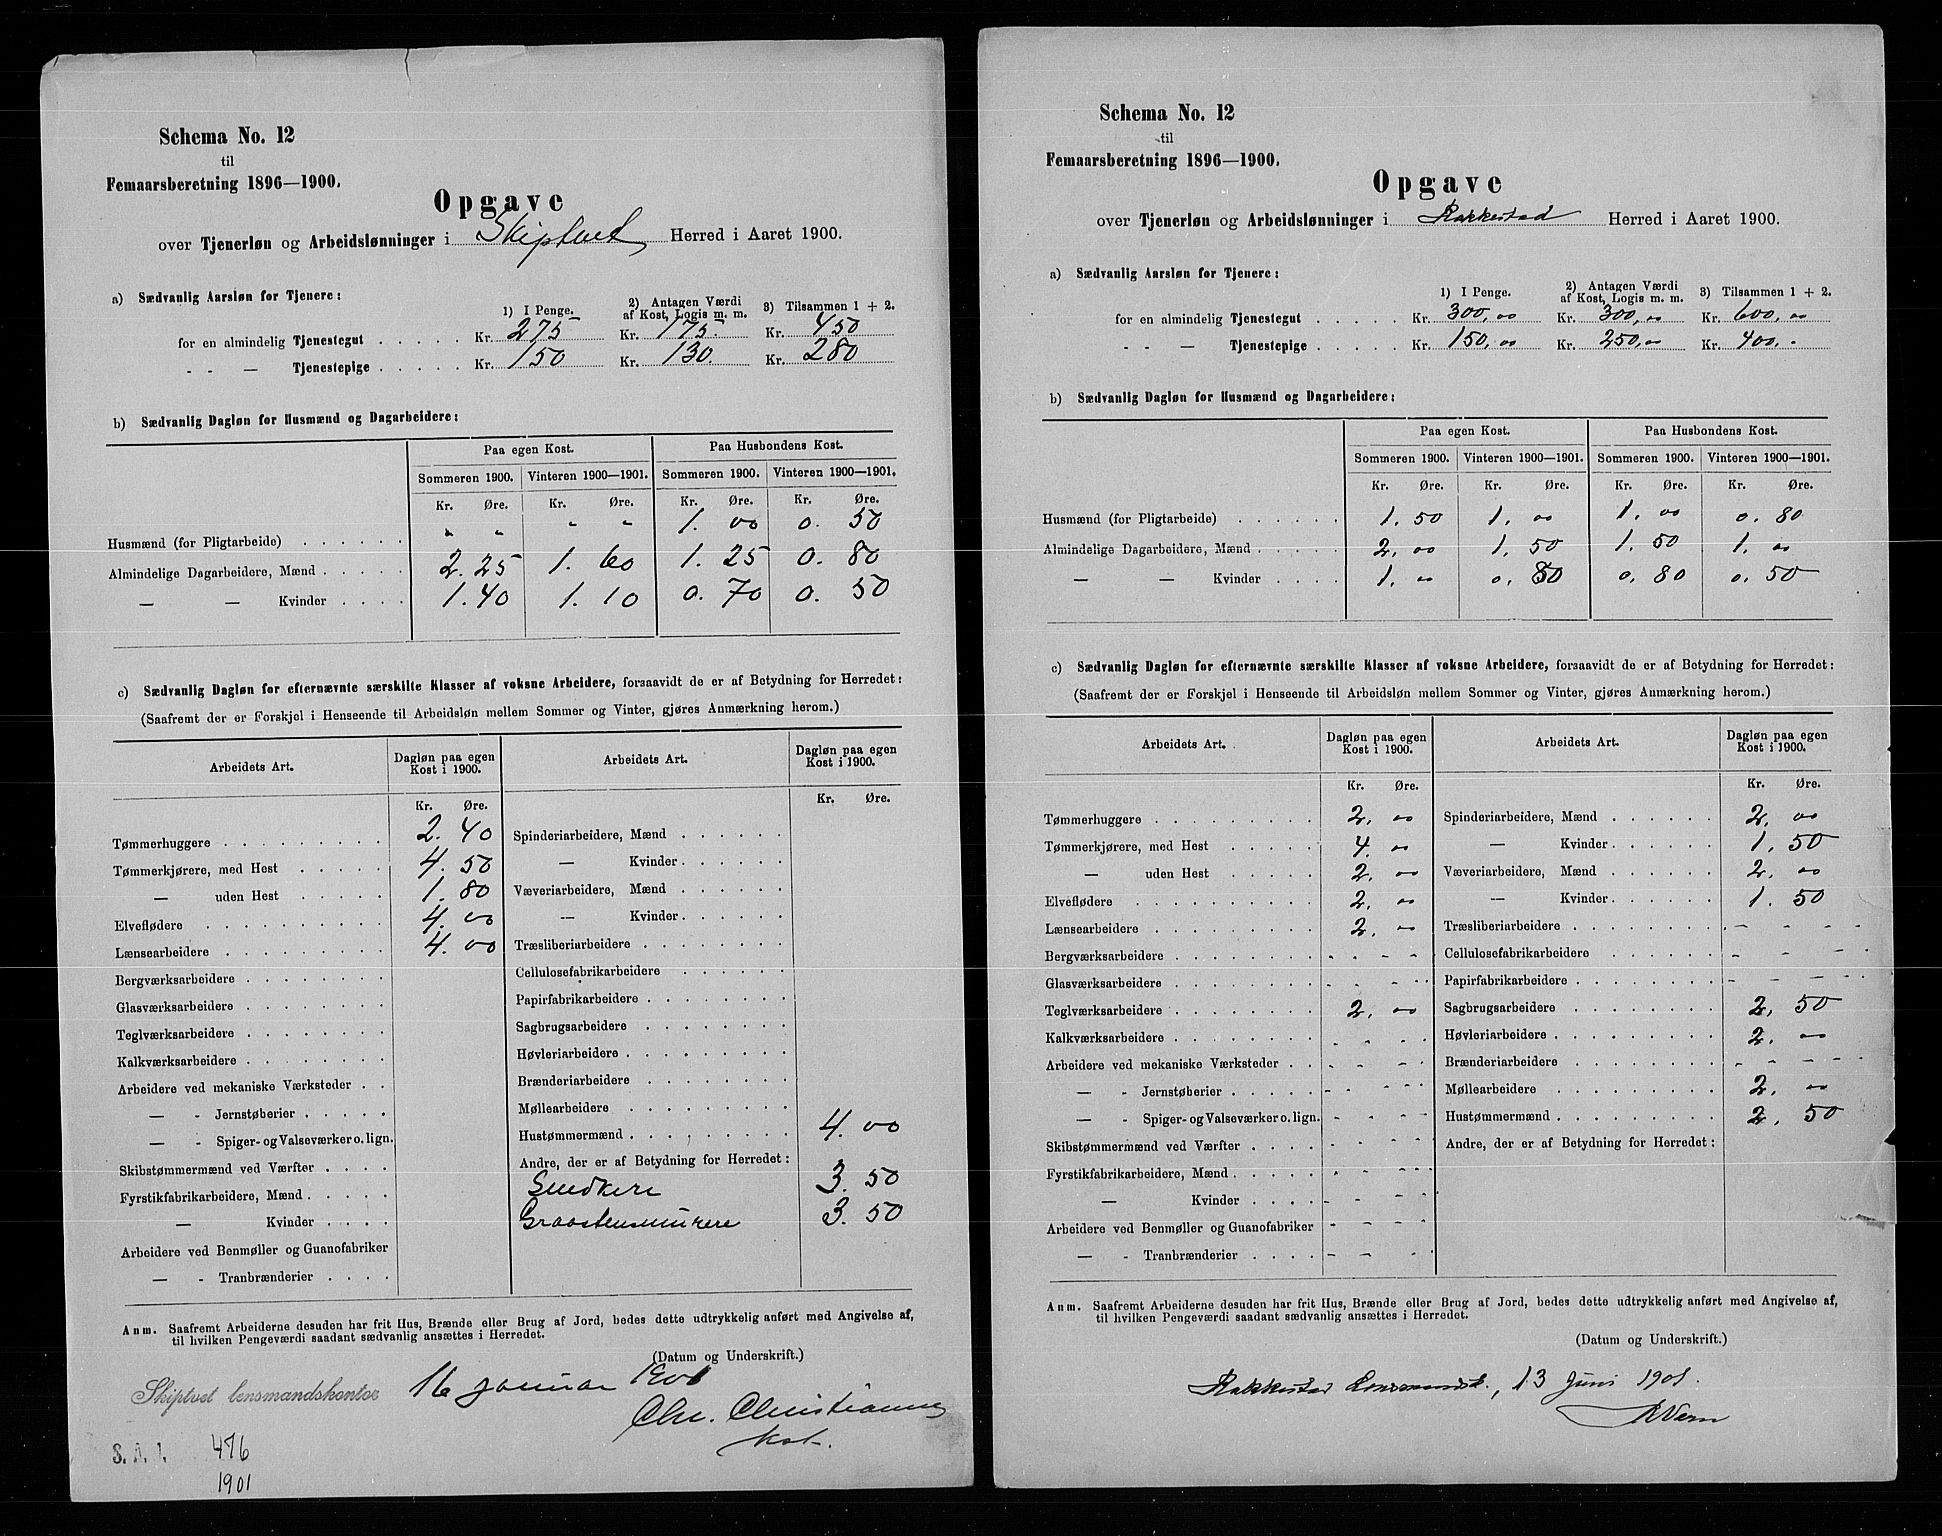 Schema No. 12
til
Femaarsberetning 1896—1900.
Opgave
over Tjenerløn og Arbeidslønninger i Skiptvet Herred i Aaret 1900.
a) Sædvanlig Aarsløn for Tjenere:
1) I Penge. 2) Antagen Værdi af Kost, Logis m. m. 3) Tilsammen 1 + 2.
for en almindelig Tjenestegut . . . . . Kr. 275 Kr. 175. Kr. 450
- - — Tjenestepige . . . . . Kr. 150 Kr. 130. Kr. 280
b) Sædvanlig Dagløn for Husmænd og Dagarbeidere:
Paa egen Kost. Paa Husbondens Kost.
Sommeren 1900. Vinteren 1900—1901. Sommeren 1900. Vinteren 1900—1901.
Kr. Øre. Kr. Øre. Kr. Øre. Kr. Øre.
Husmænd (for Pligtarbeide) . . . . . . „ „ „ „ 1. 00 0. 50
Almindelige Dagarbeidere, Mænd . . . . . 2. 25 1. 60 1. 25 0. 80
— — Kvinder . . . . 1. 40 1. 10 0. 70 0. 50
c) Sædvanlig Dagløn for efternævnte særskilte Klasser af voksne Arbeidere, forsaavidt de er af Betydning for Herredet:
(Saafremt der er Forskjel i Henseende til Arbeidsløn mellem Sommer og Vinter, gjøres Anmærkning herom.)
Arbeidets Art. Dagløn paa egen Kost i 1900.
Kr. Øre.
Tømmerhuggere . . . . . . . . . 2. 40
Tømmerkjørere, med Hest . . . . . 4. 50
— uden Hest . . . . . 1. 80
Elveflødere . . . . . . . . . . 4. 00
Lænsearbeidere . . . . . . . . . 4. 00
Bergværksarbeidere . . . . . . . .
Glasværksarbeidere . . . . . . . .
Teglværksarbeidere . . . . . . . .
Kalkværksarbeidere . . . . . . . .
Arbeidere ved mekaniske Værksteder . .
— - Jernstøberier . . . . .
— - Spiger- og Valseværker o. lign.
Skibstømmermænd ved Værfter . . . .
Fyrstikfabrikarbeidere, Mænd . . . . .
— Kvinder . . . .
Arbeidere ved Benmøller og Guanofabriker
— - Tranbrænderier . . . .
Arbeidets Art. Dagløn paa egen Kost i 1900.
Kr. Øre.
Spinderiarbeidere, Mænd . . . . . .
— Kvinder . . . . . .
Væveriarbeidere, Mænd . . . . . .
— Kvinder . . . . . .
Træsliberiarbeidere . . . . . . . .
Cellulosefabrikarbeidere . . . . . .
Papirfabrikarbeidere . . . . . . . .
Sagbrugsarbeidere . . . . . . . .
Høvleriarbeidere . . . . . . . . .
Brænderiarbeidere . . . . . . . .
Møllearbeidere . . . . . . . . .
Hustømmermænd . . . . . . . . 4. 00
Andre, der er af Betydning for Herredet:
Snedkere 3. 50
Graastensmurere 3. 50
Anm. Saafremt Arbeiderne desuden har frit Hus, Brænde eller Brug af Jord, bedes dette udtrykkelig anført med Angivelse af,
til hvilken Pengeværdi saadant sædvanlig ansættes i Herredet.
(Datum og Underskrift.)
Skiptvet lensmandskontor 16 januar 1901
Chr. Christiansen
kst.
S. A. I. 476
1901
Schema No. 12
til
Femaarsberetning 1896—1900.
Opgave
over Tjenerløn og Arbeidslønninger i Rakkestad Herred i Aaret 1900.
a) Sædvanlig Aarsløn for Tjenere:
1) I Penge. 2) Antagen Værdi af Kost, Logis m. m. 3) Tilsammen 1 + 2.
for en almindelig Tjenestegut . . . . . Kr. 300,00 Kr. 300,00 Kr. 600,00
- - — Tjenestepige . . . . . Kr. 150,00 Kr. 250,00 Kr. 400,-
b) Sædvanlig Dagløn for Husmænd og Dagarbeidere:
Paa egen Kost. Paa Husbondens Kost.
Sommeren 1900. Vinteren 1900—1901. Sommeren 1900. Vinteren 1900—1901.
Kr. Øre. Kr. Øre. Kr. Øre. Kr. Øre.
Husmænd (for Pligtarbeide) . . . . . . 1. 50 1. 00 1. 00 0. 80
Almindelige Dagarbeidere, Mænd . . . . . 2. 00 1. 50 1. 50 1. 00
— — Kvinder . . . . 1. 00 0. 80 0. 80 0. 50
c) Sædvanlig Dagløn for efternævnte særskilte Klasser af voksne Arbeidere, forsaavidt de er af Betydning for Herredet:
(Saafremt der er Forskjel i Henseende til Arbeidsløn mellem Sommer og Vinter, gjøres Anmærkning herom.)
Arbeidets Art. Dagløn paa egen Kost i 1900.
Kr. Øre.
Tømmerhuggere . . . . . . . . . 2. 00
Tømmerkjørere, med Hest . . . . . 4. 00
— uden Hest . . . . . 2. 00
Elveflødere . . . . . . . . . . 2. 00
Lænsearbeidere . . . . . . . . . 2. 00
Bergværksarbeidere . . . . . . . . - - - -
Glasværksarbeidere . . . . . . . . - - - -
Teglværksarbeidere . . . . . . . . 2. 00
Kalkværksarbeidere . . . . . . . . - - - -
Arbeidere ved mekaniske Værksteder . . - - - -
— - Jernstøberier . . . . . - - - -
— - Spiger- og Valseværker o. lign. - - - -
Skibstømmermænd ved Værfter . . . . - - - -
Fyrstikfabrikarbeidere, Mænd . . . . . - - - -
— Kvinder . . . . - - - -
Arbeidere ved Benmøller og Guanofabriker - - - -
— - Tranbrænderier . . . . . - - - -
Arbeidets Art. Dagløn paa egen Kost i 1900.
Kr. Øre.
Spinderiarbeidere, Mænd . . . . . . 2. 00
— Kvinder . . . . . . 1. 50
Væveriarbeidere, Mænd . . . . . . 2. 00
— Kvinder . . . . . . 1. 50
Træsliberiarbeidere . . . . . . . . - - - -
Cellulosefabrikarbeidere . . . . . . - - - -
Papirfabrikarbeidere . . . . . . . . - - - -
Sagbrugsarbeidere . . . . . . . . 2. 50
Høvleriarbeidere . . . . . . . . . 2. 00
Brænderiarbeidere . . . . . . . . - - - -
Møllearbeidere . . . . . . . . . 2. 00
Hustømmermænd . . . . . . . . 2. 50
Andre, der er af Betydning for Herredet:
Anm. Saafremt Arbeiderne desuden har frit Hus, Brænde eller Brug af Jord, bedes dette udtrykkelig anført med Angivelse af,
til hvilken Pengeværdi saadant sædvanlig ansættes i Herredet.
(Datum og Underskrift.)
Rakkestad Lensmandsk., 13 Juni 1901.